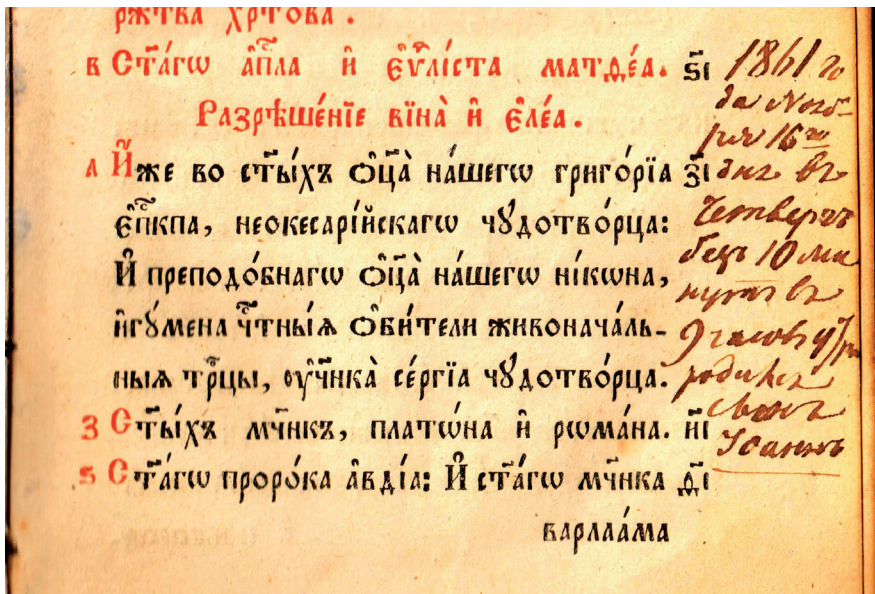 рж҃тва хрⷭ҇това .
в Ст҃а́гѡ а҆пⷭ҇ла и҆ є҆ѵⷢ҇лі́ста матѳе́а. ѕ҃і
Разрѣше́нїе вїна̀ и҆ є҆ле́а .
а И҆́же во ст҃ы́хъ ѻ҆ц҃а̀ на́шегѡ григо́рїа з҃і
є҆пⷭ҇кпа, неокесарі́йскагѡ чꙋдотво́рца:
И҆ преподо́бнагѡ ѻ҆ц҃а̀ на́шегѡ ні́кѡна,
и҆гꙋ́мена чⷭ҇тны́ѧ ѻ҆би́тели живонача́ль-
ныѧ трⷪ҇цы, ᲂу҆ч҃нка̀ се́ргїа чꙋдотво́рца.
з Ст҃ы́хъ мч҃нкъ, платѡ́на и҆ рѡма́на. и҃і
ѕ Ст҃а́гѡ проро́ка а҆вді́а: И҆ ст҃а́гѡ мч҃нка ѳ҃і
варлаа́ма
1861 го
да Нояб-
ря 16го
дня въ
Четвергъ
безъ 10 ми
нутъ въ
9 часовъ ут
родился
сынъ
Иоаннъ